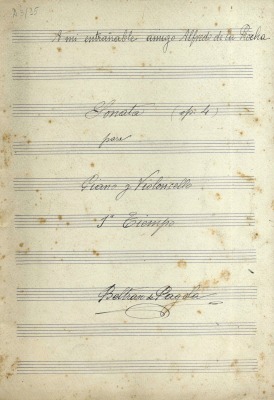 A mi entrañable amigo Alfredo de la Rocha
Sonata (op. 4)
para
Piano y Violoncello
1º Tiempo
Beltran de Pagola